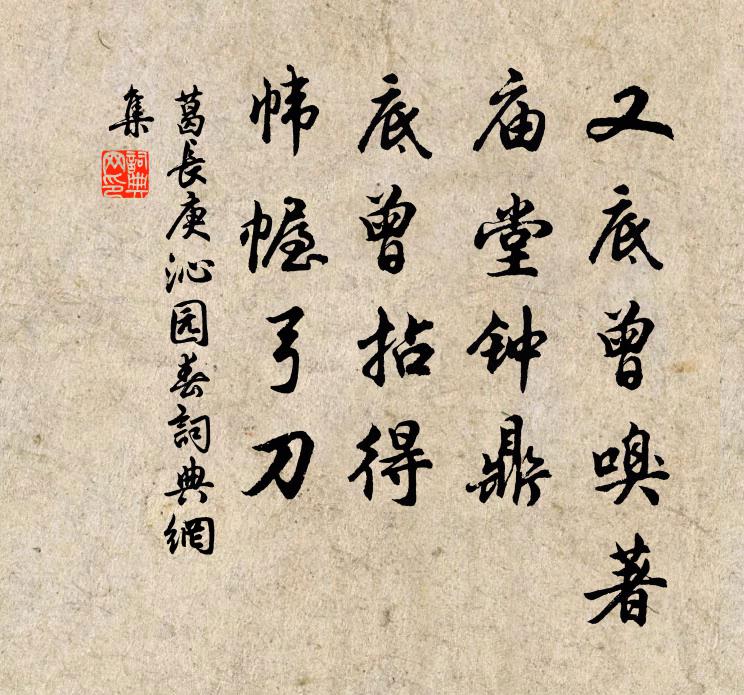 又底曾嗅著
庙堂钟鼎
底曾拈得
帏幄弓刀
葛長庚沁园春詞典網
集
詞典
网印